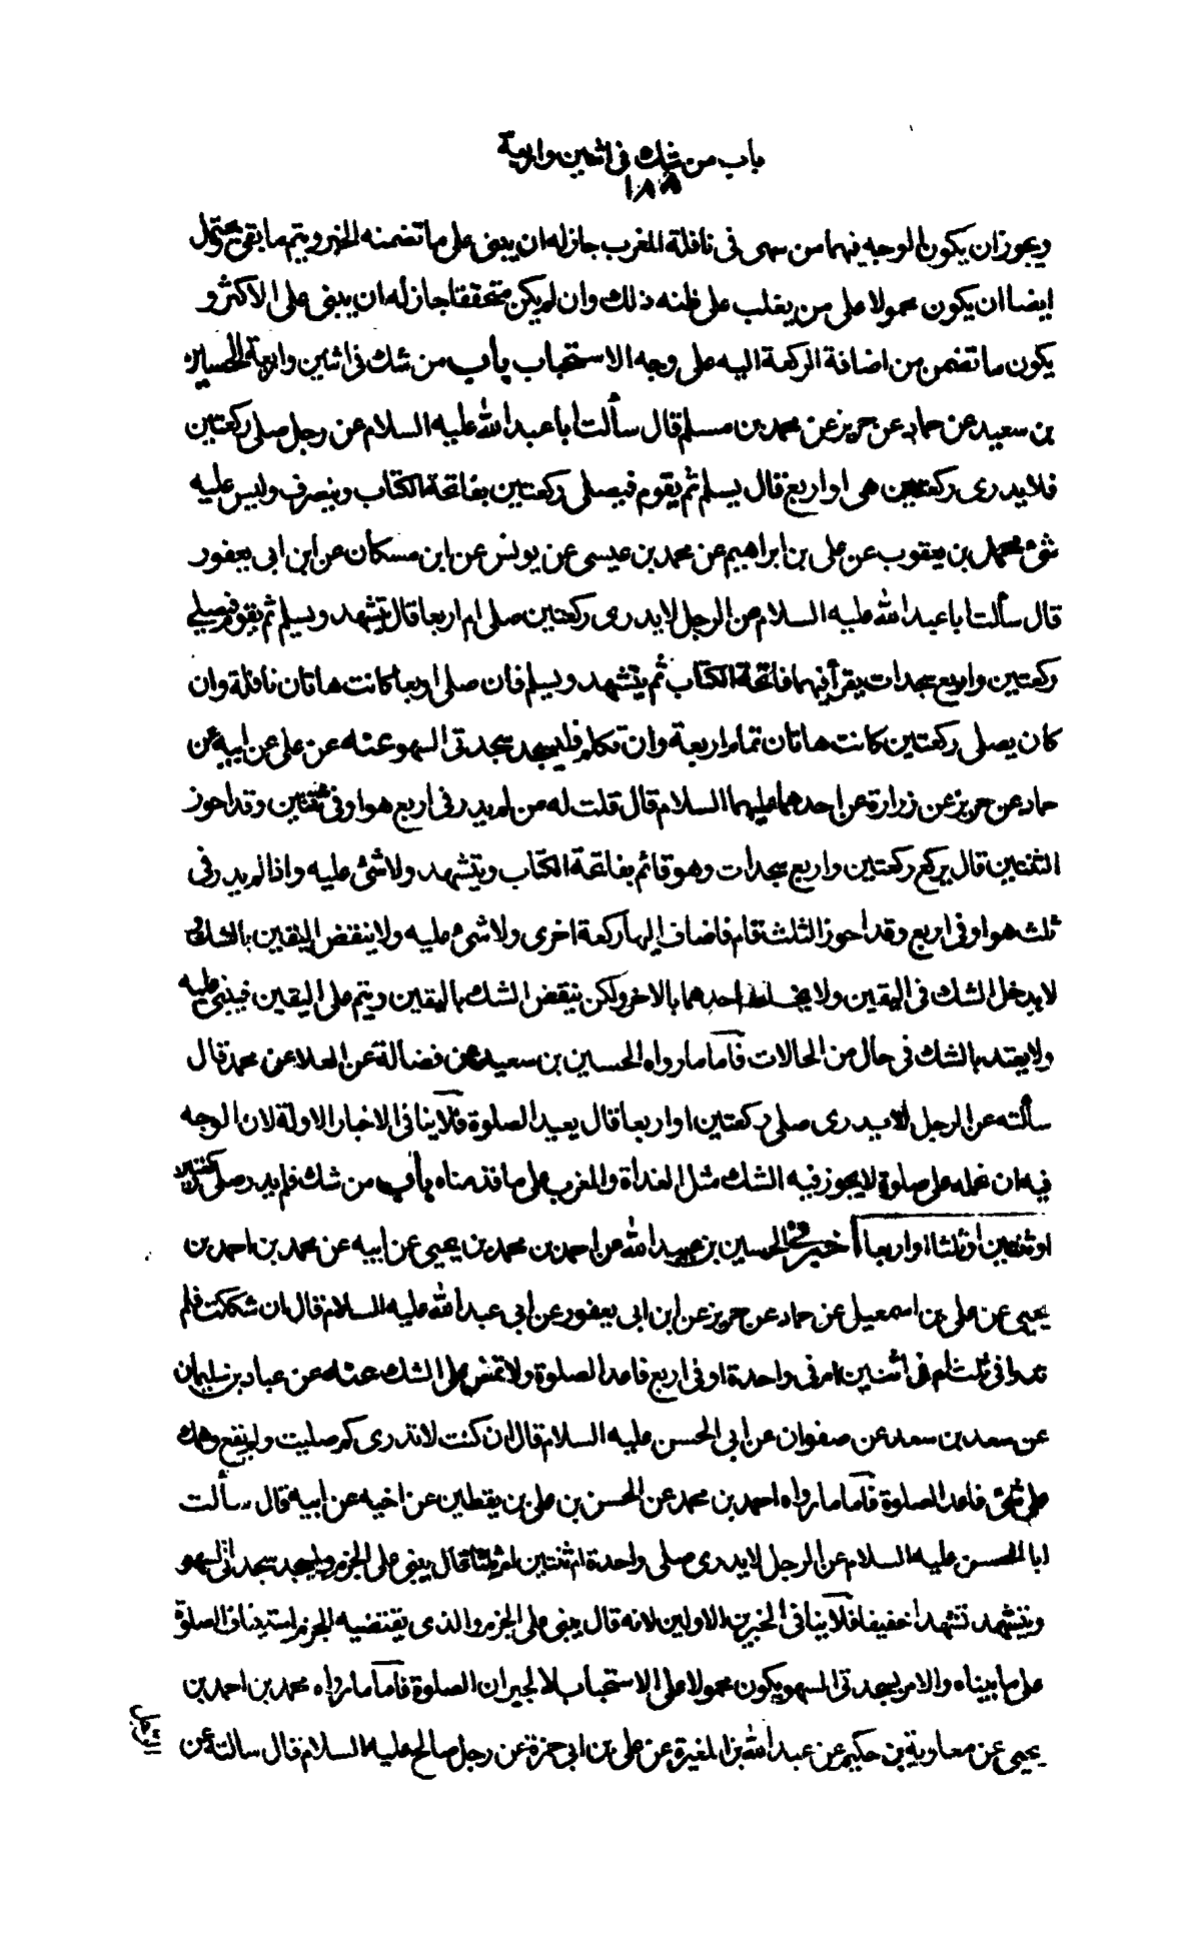 باب من شك فى اثنين واربعة
١٨٨
ويجوز ان يكون الوجه فيهما من سهى فى نافلة المغرب جاز له ان يبنى على ما تضمنه الخبر ويتم ما بقى ويحتمل
ايضا ان يكون محمولا على من يغلب على ظنه ذلك وان لم يكن متحققا جاز له ان يبنى على الاكثر و
يكون ما تضمن من اضافة الركعة اليه على وجه الاستحباب باب من شك فى اثنين واربعة الحسين
بن سعيد عن حماد عن حريز عن محمد بن مسلم قال سألت ابا عبد الله عليه السلام عن رجل صلى ركعتين
فلا يدرى ركعتين هى او اربع قال يسلم ثم يقوم فيصلى ركعتين بفاتحة الكتاب وينصرف وليس عليه
شئ محمد بن يعقوب عن على بن ابراهيم عن محمد بن عيسى عن يونس عن ابن مسكان عن ابن ابى يعفور
قال سألت ابا عبد الله عليه السلام عن الرجل لا يدرى ركعتين صلى ام اربعا قال يتشهد ويسلم ثم يقوم فيصلى
ركعتين واربع سجدات يقرأ فيهما فاتحة الكتاب ثم يتشهد ويسلم فان صلى اربعا كانت هاتان نافلة وان
كان يصلى ركعتين كانت هاتان تمام اربعة وان تكلم فليسجد سجدتى السهو عنه عن على عن ابيه عن
حماد عن حريز عن زرارة عن احدهما عليهما السلام قال قلت له من لم يدر فى اربع هو او فى ثنتين وقد احوز
الثنتين قال يركع ركعتين واربع سجدات وهو قائم بفاتحة الكتاب ويتشهد ولا شئ عليه واذا لم يدر فى
ثلث هو او فى اربع وقد احوز الثلث قام فاضاف اليها ركعة اخرى ولا شئ عليه ولا ينقض اليقين بالشك و
لا يدخل الشك فى اليقين ولا يخلط احدهما بالاخر ولكن ينقض الشك باليقين ويتم على اليقين فيبنى عليه
ولا يعتد بالشك فى حال من الحالات فاما ما رواه الحسين بن سعيد عن فضالة عن العلا عن محمد قال
سألته عن الرجل لا يدرى صلى ركعتين او اربعا قال يعيد الصلوة فلا ينافى الاخبار الاولة لان الوجه
فيه ان نحمله على صلوة لا يجوز فيه الشك مثل الغداة والمغرب على ما قدمناه باب من شك فلم يدر صلى ركعة
او ثنتين او ثلثا او اربعا أخبرنى الحسين بن عبيد الله عن احمد بن محمد بن يحيى عن ابيه عن محمد بن احمد بن
يحيى عن على بن اسمعيل عن حماد عن حريز عن ابن ابى يعفور عن ابى عبد الله عليه السلام قال ان شككت فلم
تدر افى ثلث ام فى اثنين ام فى واحدة او فى اربع فاعد الصلوة ولا تمض على الشك عنه عن عباد بن سليمان
عن سعد بن سعد عن صفوان عن ابى الحسن عليه السلام قال ان كنت لا تدرى كم صليت ولم يقع وهمك
على شئ فاعد الصلوة فاما ما رواه احمد بن محمد عن الحسن بن على بن يقطين عن اخيه عن ابيه قال سألت
ابا الحسن عليه السلام عن الرجل لا يدرى صلى واحدة ام ثنتين ام ثلثا قال يبنى على الجزم ويسجد سجدتى السهو
ويتشهد تشهدا خفيفا فلا ينافى الخبرين الاولين لانه قال يبنى على الجزم والذى يقتضيه الجزم استيناف الصلوة
على ما بيناه والامر بسجدتى السهو يكون محمولا على الاستحباب لا لجبران الصلوة فاما ما رواه محمد بن احمد بن
يحيى عن معاوية بن حكيم عن عبد الله بن المغيرة عن على بن ابى حمزة عن رجل صالح عليه السلام قال سالته عن